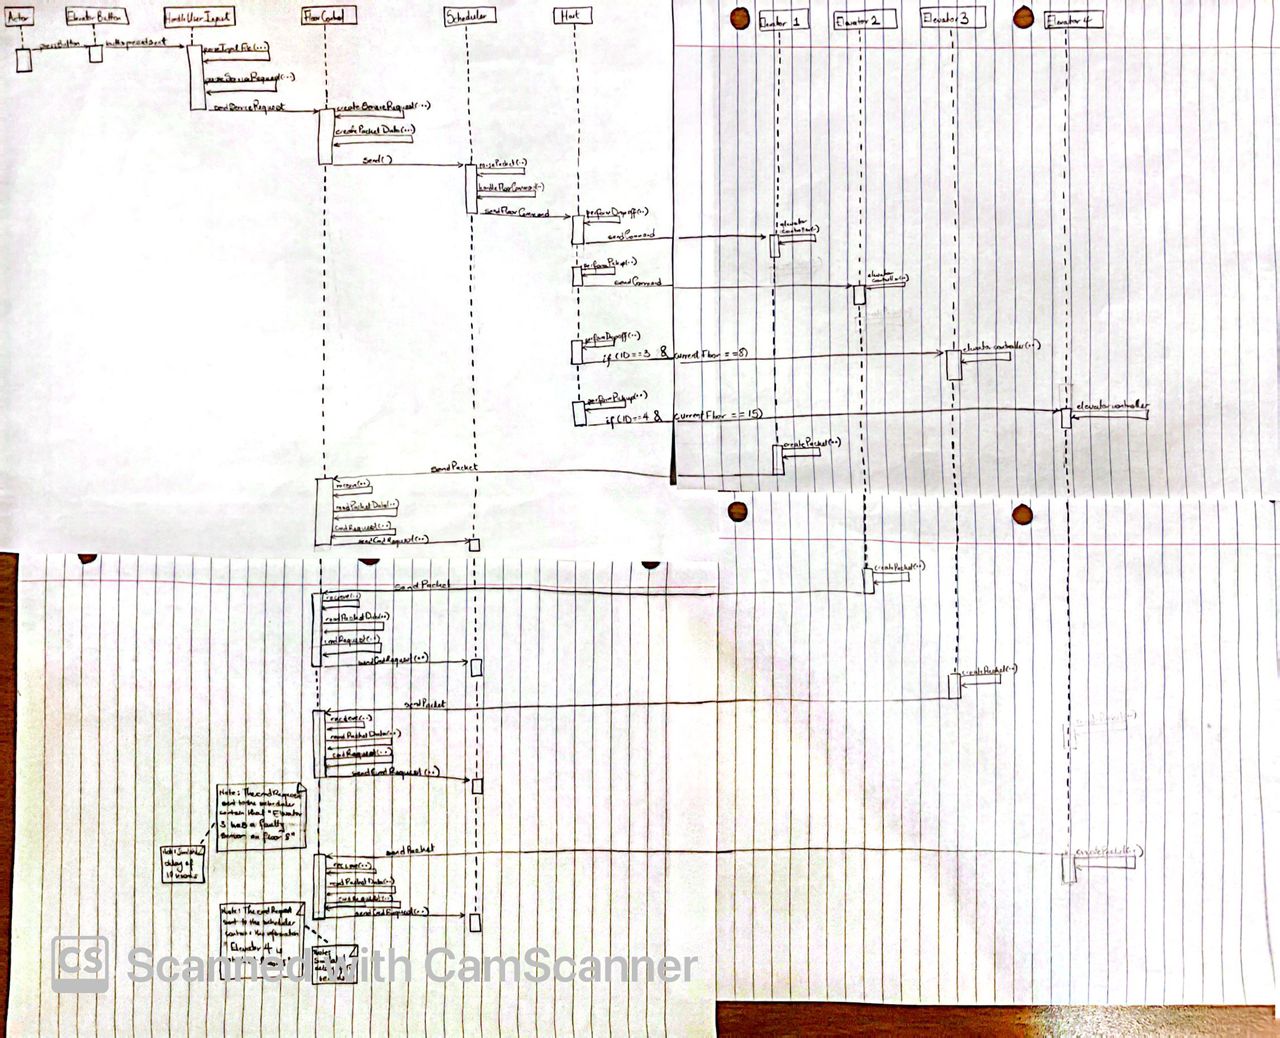 Actor
Elevator Button
HandleUserInput
Floor Control
Scheduler
Host
Elevator 1
Elevator 2
Elevator 3
Elevator 4
pressButton
parseInputFile(...)
sendServiceRequest
createServiceRequest(...)
createPacket Data(...)
send()
handleFloorCommand(..)
sendFloor Command
performDropoff(..)
sendCommand
elevator
controller(..)
performPickup(..)
sendCommand
elevator
controller(..)
performDropoff(..)
if (ID==3 & currentFloor ==8)
elevator controller(..)
performPickup(..)
if (ID==4 & currentFloor == 15)
elevator controller
createPacket(..)
sendPacket
readPacketData(..)
cmdRequest(..)
sendCmdRequest(..)
createPacket(..)
sendPacket
recieve(..)
readPacketData(..)
cmdRequest(..)
sendCmdRequest(..)
createPacket(..)
sendPacket
recieve(..)
readPacketData(..)
cmdRequest(..)
sendCmdRequest(..)
Note: The cmdRequest
sent to the scheduler
contain that "Elevator
3 has a faulty
sensor on floor 8"
delay of
sendPacket
createPacket(..)
recieve(..)
readPacketData(..)
cmdRequest(..)
sendCmdRequest(..)
Note: The cmdRequest
sent to the scheduler
contains the information
"Elevator 4
Note:
CS Scanned with CamScanner